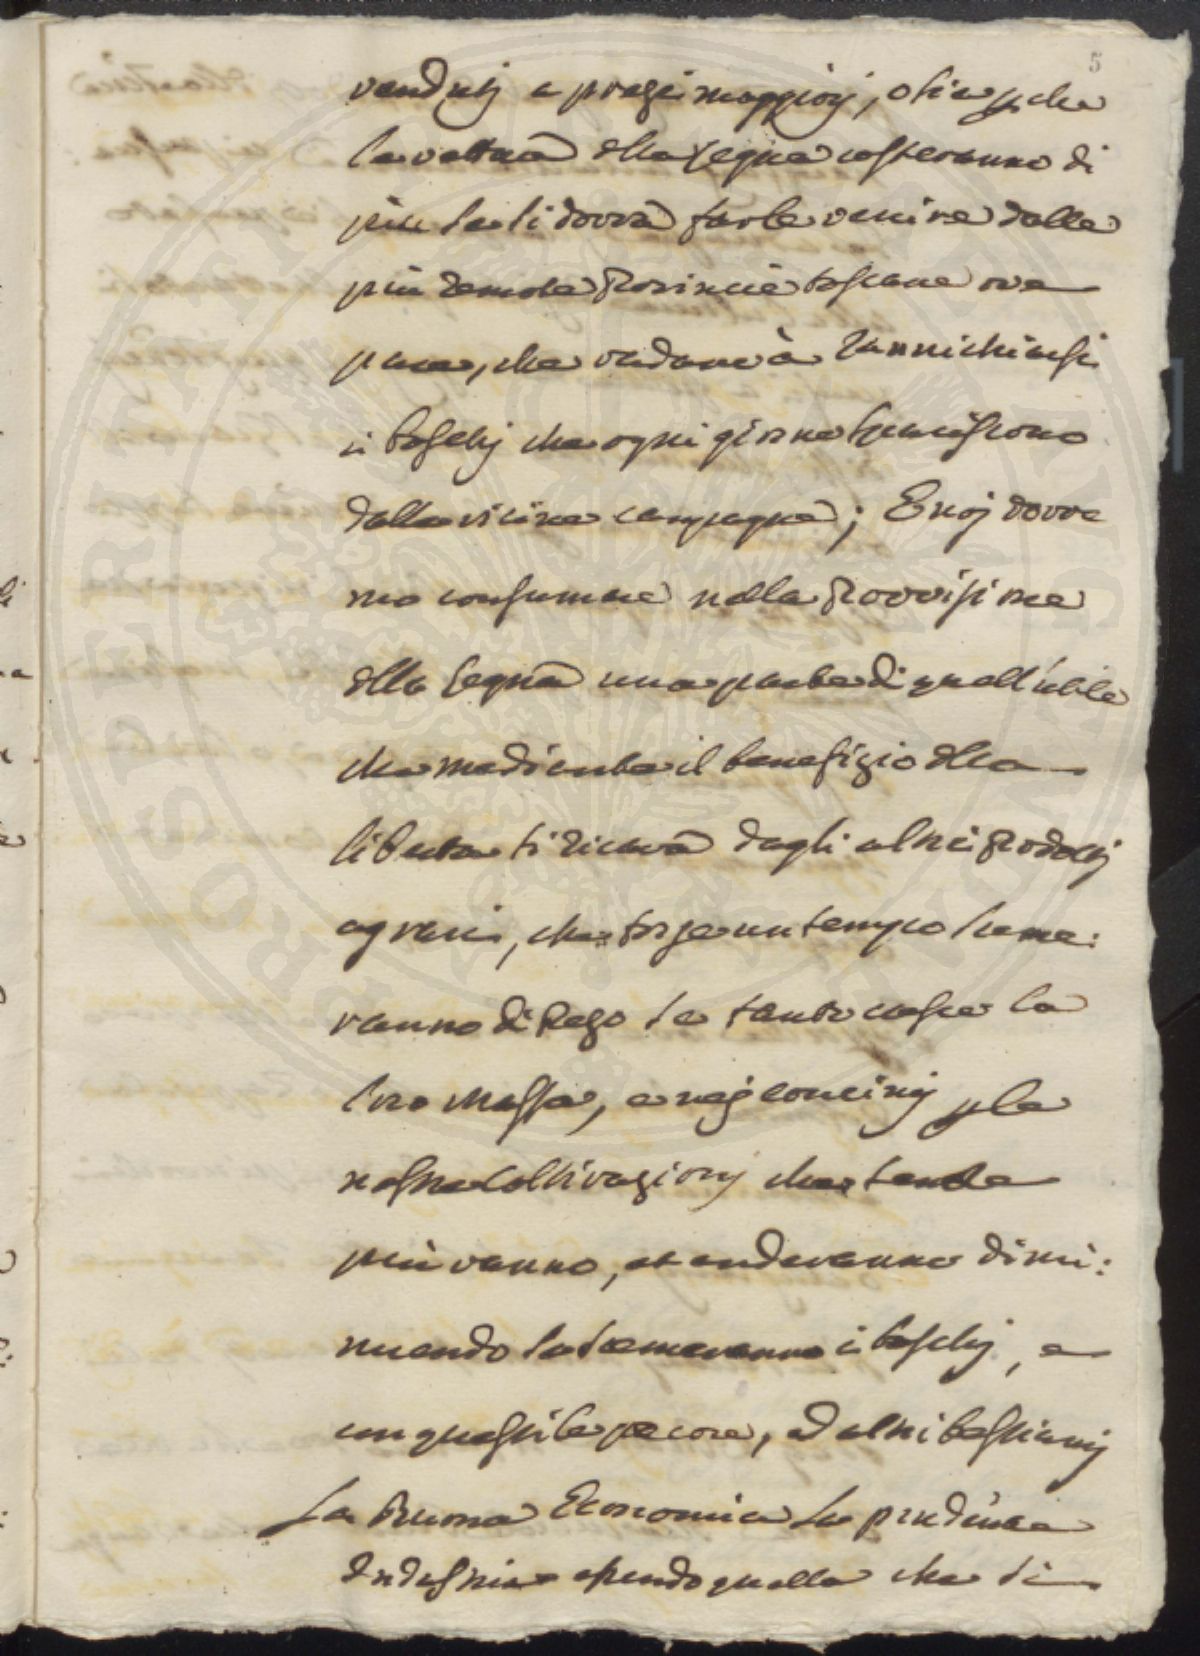 5
venduti a prezzi maggiori, o sia p che
la vettura della legna costeranno di
più se si dovrà farle venire dalle
più remote Provincie toscane ove
pare, che vadano à rannichiarsi
i boschj che ogni giorno spariscono
dalla vicina campagna; E noj dovre
mo consumare nella Provvisione
della legna una parte di quell'utile
che mediante il benefizio della
libertà si ricava dagli altri Prodottj
agrarj, che forse un tempo sceme:
ranno di Pezo se tanto cresce la
loro Massa, e nej concimj p le
nostre Coltivazionj che tanto
più vanno, et anderanno dimi:
nuendo se scemeranno i boschj, e
con questi le pecore, ed altri bestiamj
La buona Economia la prudente
Industria essendo quella che si
PROSPERITATI AVGENDAE